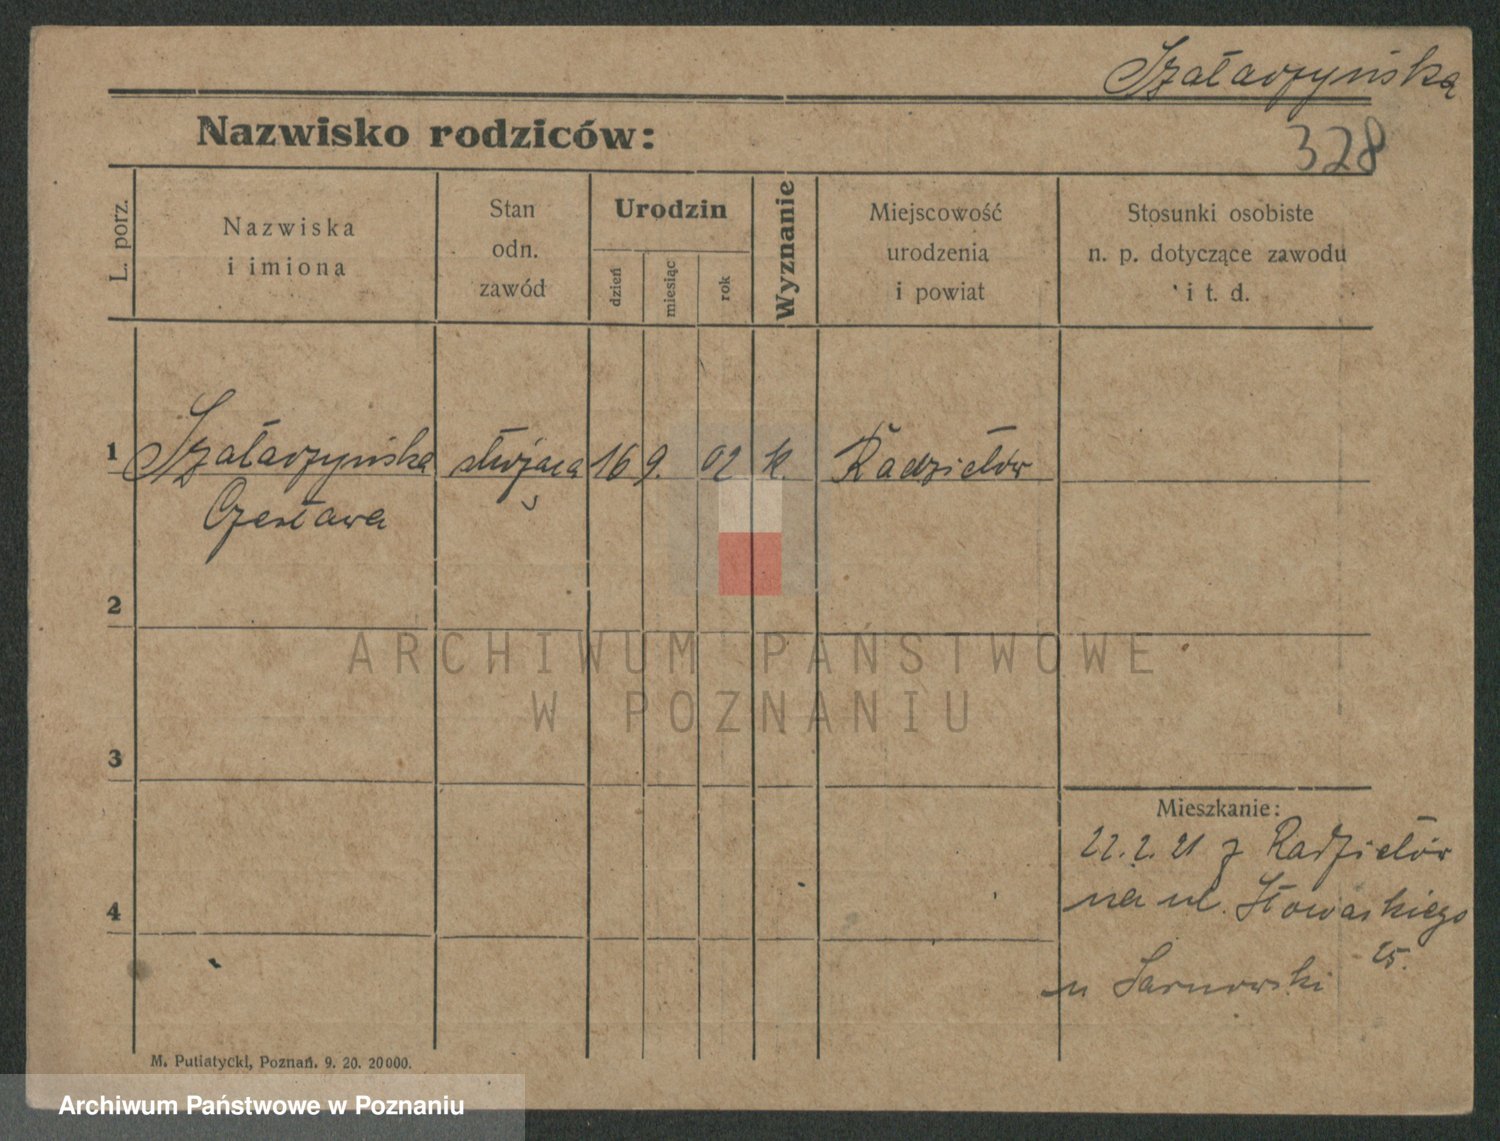 Szałarzyńska
Nazwisko rodziców:
328
L. porz.
Nazwiska
i imiona
Stan
odn.
zawód
Urodzin
dzień
miesiąc
rok
Wyznanie
Miejscowość
urodzenia
i powiat
Stosunki osobiste
n. p. dotyczące zawodu
i t. d.
1 Szałarzyńska służąca 16 9. 02 k. Radzictów
Czesława
2
ARCHIWUM PAŃSTWOWE
W POZNANIU
3
Mieszkanie:
22.2.21 z Radzictów
na ul. Słowackiego
4
25.
u Sarnowski
M. Putiatycki, Poznań. 9. 20. 20000.
Archiwum Państwowe w Poznaniu